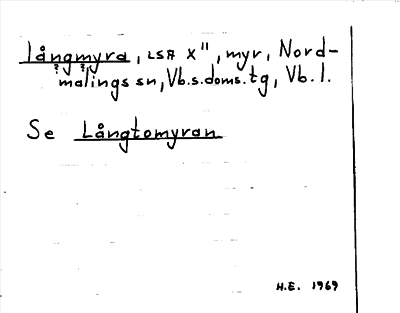 långmyra, LSA X", myr, Nord-
malings sn, Vb.s.doms.tg, Vb.l.
Se Långtomyran
H.E. 1969